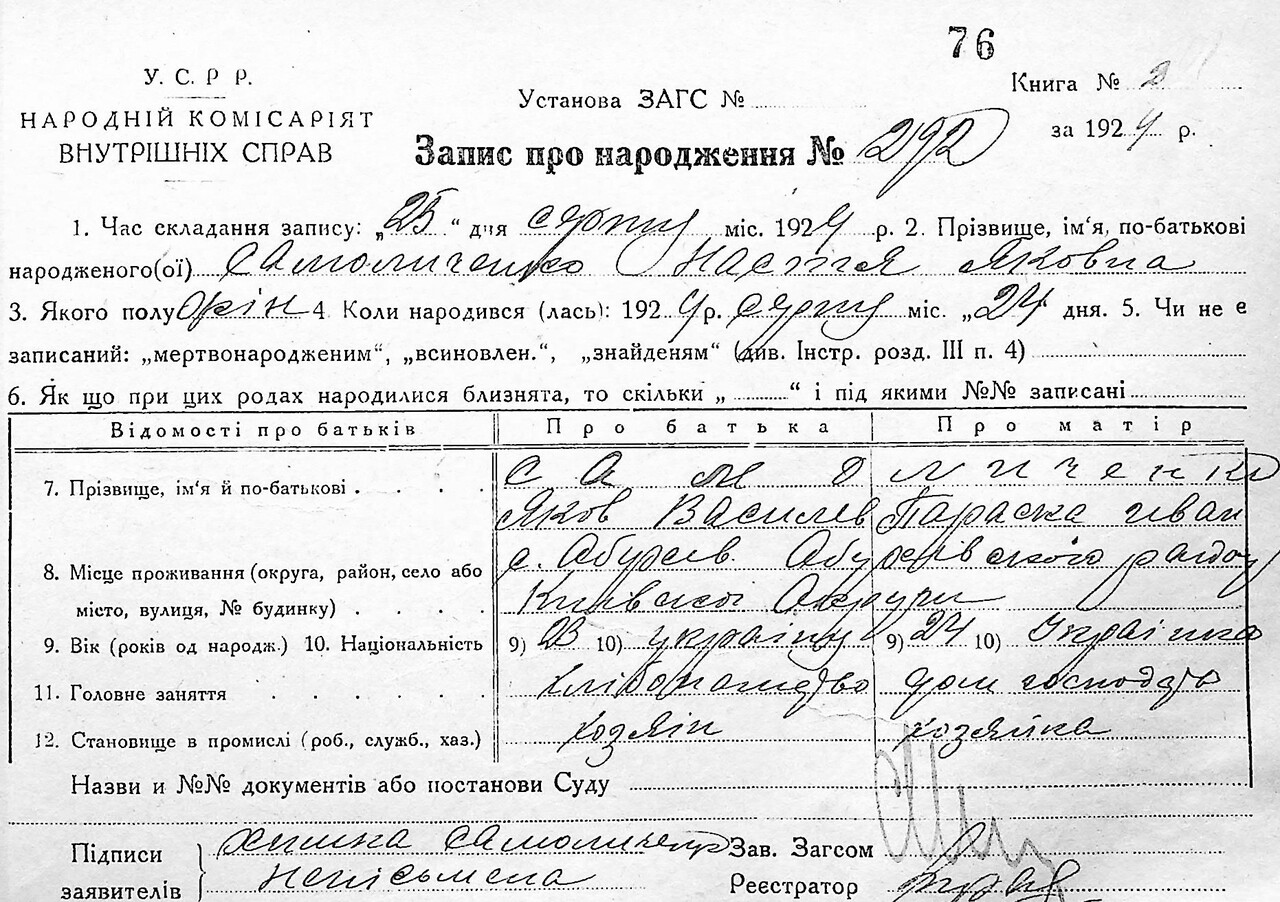 76
У. С. Р Р.
НАРОДНІЙ КОМІСАРІЯТ
ВНУТРІШНІХ СПРАВ
Установа ЗАГС №
Книга № 2
за 1924 р.
Запис про народження № 292
1. Час складання запису: „25“ дня серпня міс. 1924 р. 2. Прізвище, ім‘я, по-батькові
народженого(ої) Самоличенко Настя Яковна
3. Якого полу 4 Коли народився (лась): 1924 р. серпня міс. „24 дня. 5. Чи не є
записаний: „мертвонародженим“, „всиновлен.“, „знайденям“ (див. Інстр. розд. III п. 4)
6. Як що при цих родах народилися близнята, то скільки „ “ і під якими №№ записані
Відомості про батьків Про батька Про матір
7. Прізвище, ім‘я й по-батькові . . . . Самоличенко
Яков Василев Параска Иван
8. Місце проживання (округа, район, село або с. Абухів Абухівського району
місто, вулиця, № будинку) . . . . Київської Округи
9. Вік (років од народж.) 10. Національність 9) 23 10) українц 9) 24 10) Українка
11. Головне заняття . . . . . . хлібопашство дом господство
12. Становище в промислі (роб., служб., хаз.) хозяін хозяйка
Назви и №№ документів або постанови Суду
Підписи
заявителів
Самоличенко
неписьмена
Зав. Загсом
Реєстратор